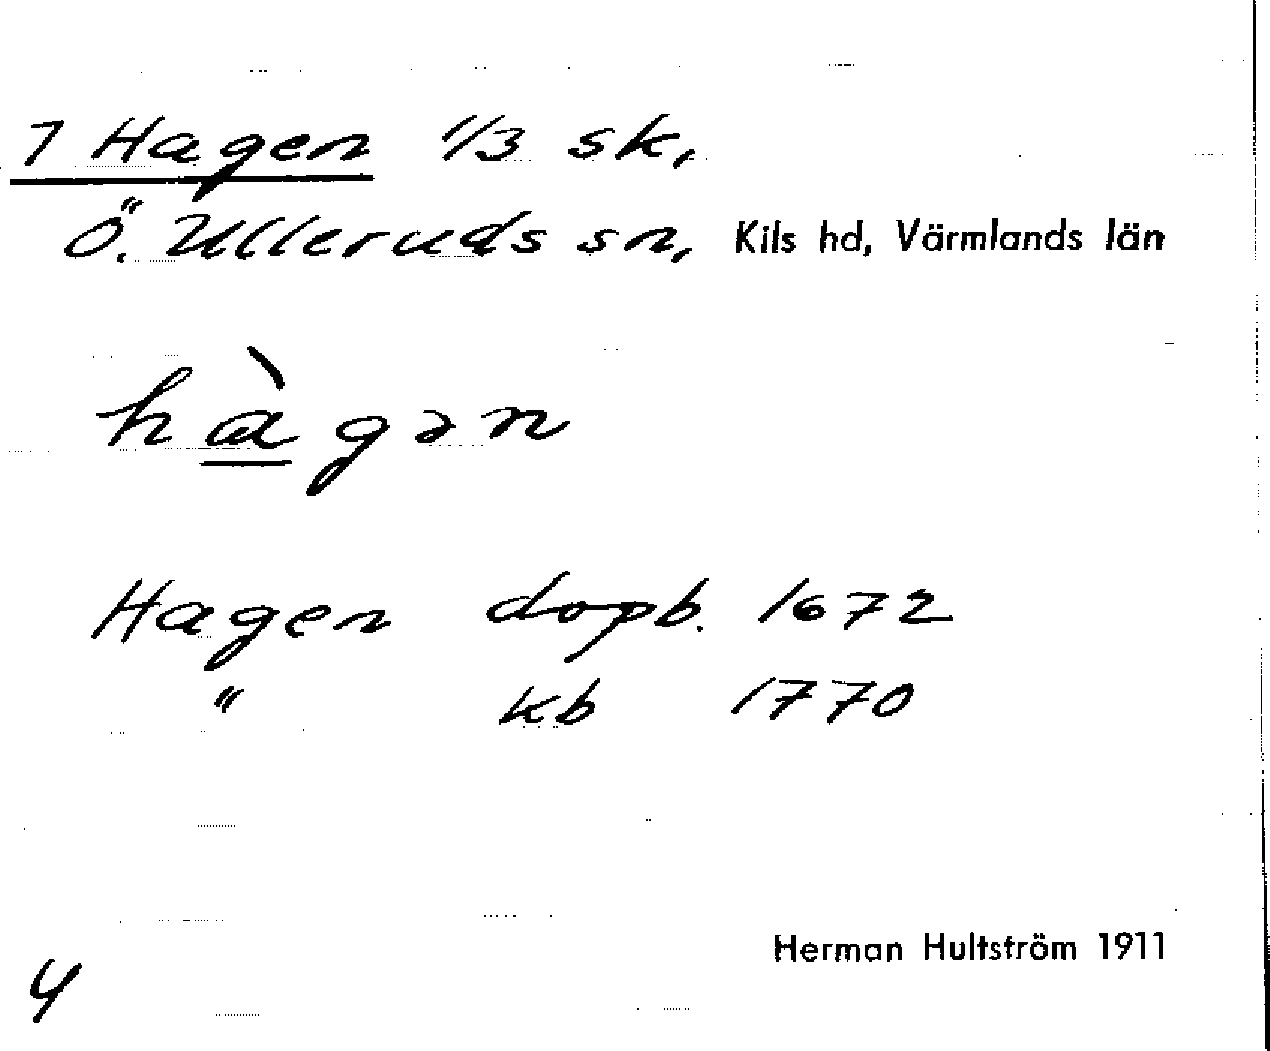 7 Hagen 1/3 sk,
Ö. Ulleruds sn, Kils hd, Värmlands län
hàgən
Hagen dopb. 1672
" kb 1770
Herman Hultström 1911
4